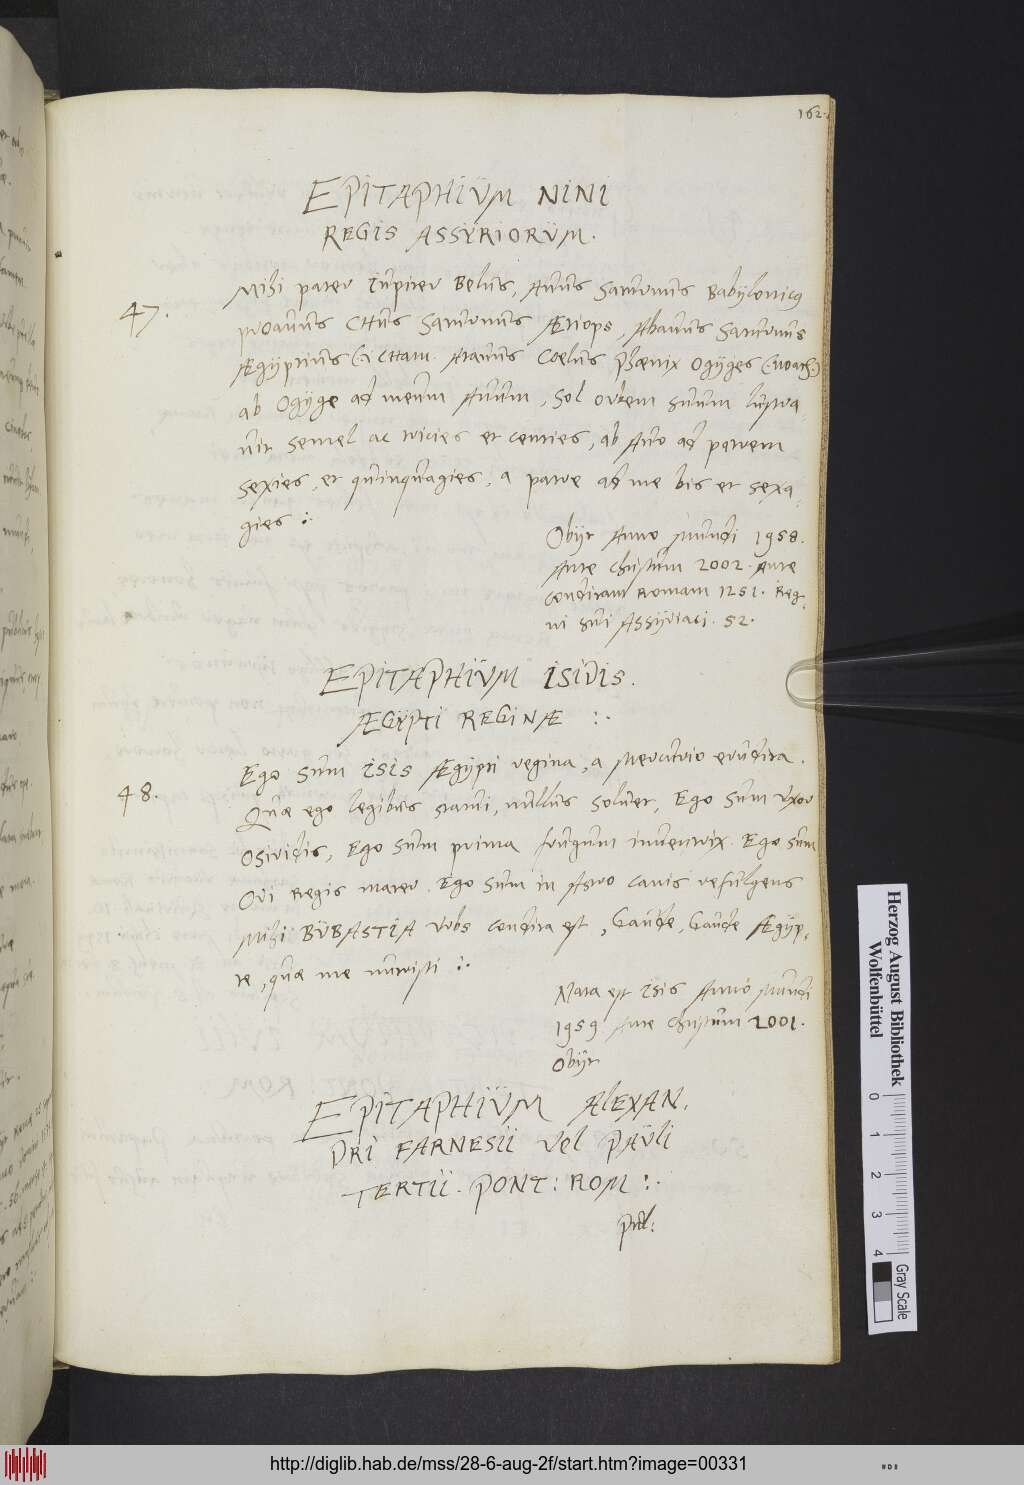 162.
EPITAPHIUM NINI
REGIS ASSYRIORUM.
47.
Mihi pater Iupiter Belus, Auus Saturnus Babylonicus
proauus CHus Saturnus Ætiops, Abauus Saturnus
Ægyptius (.i. CHam. Atauus Coelus Phœnix Ogyges (:Noach:)
ab Ogyge ad meum Auum, Sol orbem suum lustra,
uit semel ac tricies et centies, ab Auo ad patrem
sexies, et quinquagies, a patre ad me bis et sexa,
gies :.
Obijt Anno Mundi 1958.
Ante Christum 2002. Ante
conditam Romam 1251. Reg,
ni sui Assyriaci. 52.
EPITAPHIUM ISIDIS.
ÆGYPTI REGINÆ :.
48.
Ego sum ISIS Ægypti regina, a Mercurio erudita.
Quæ ego legibus statui, nullus soluet, Ego sum uxor
Osiridis, Ego sum prima frugum inuentrix. Ego sum
Ori Regis mater. Ego sum in Astro canis refulgens
Mihi BUBASTIA urbs condita est, Gaude, Gaude Ægyp,
te, quæ me nutristi :.
Nata est Isis Anno Mundi
1959 Ante Christum 2001.
Obijt
EPITAPHIUM ALEXAN,
DRI FARNESII vel PAULI
TERTII. PONT: ROM :.
Herzog August Bibliothek
Wolfenbüttel
0 1 2 3 4
Gray Scale
http://diglib.hab.de/mss/28-6-aug-2f/start.htm?image=00331